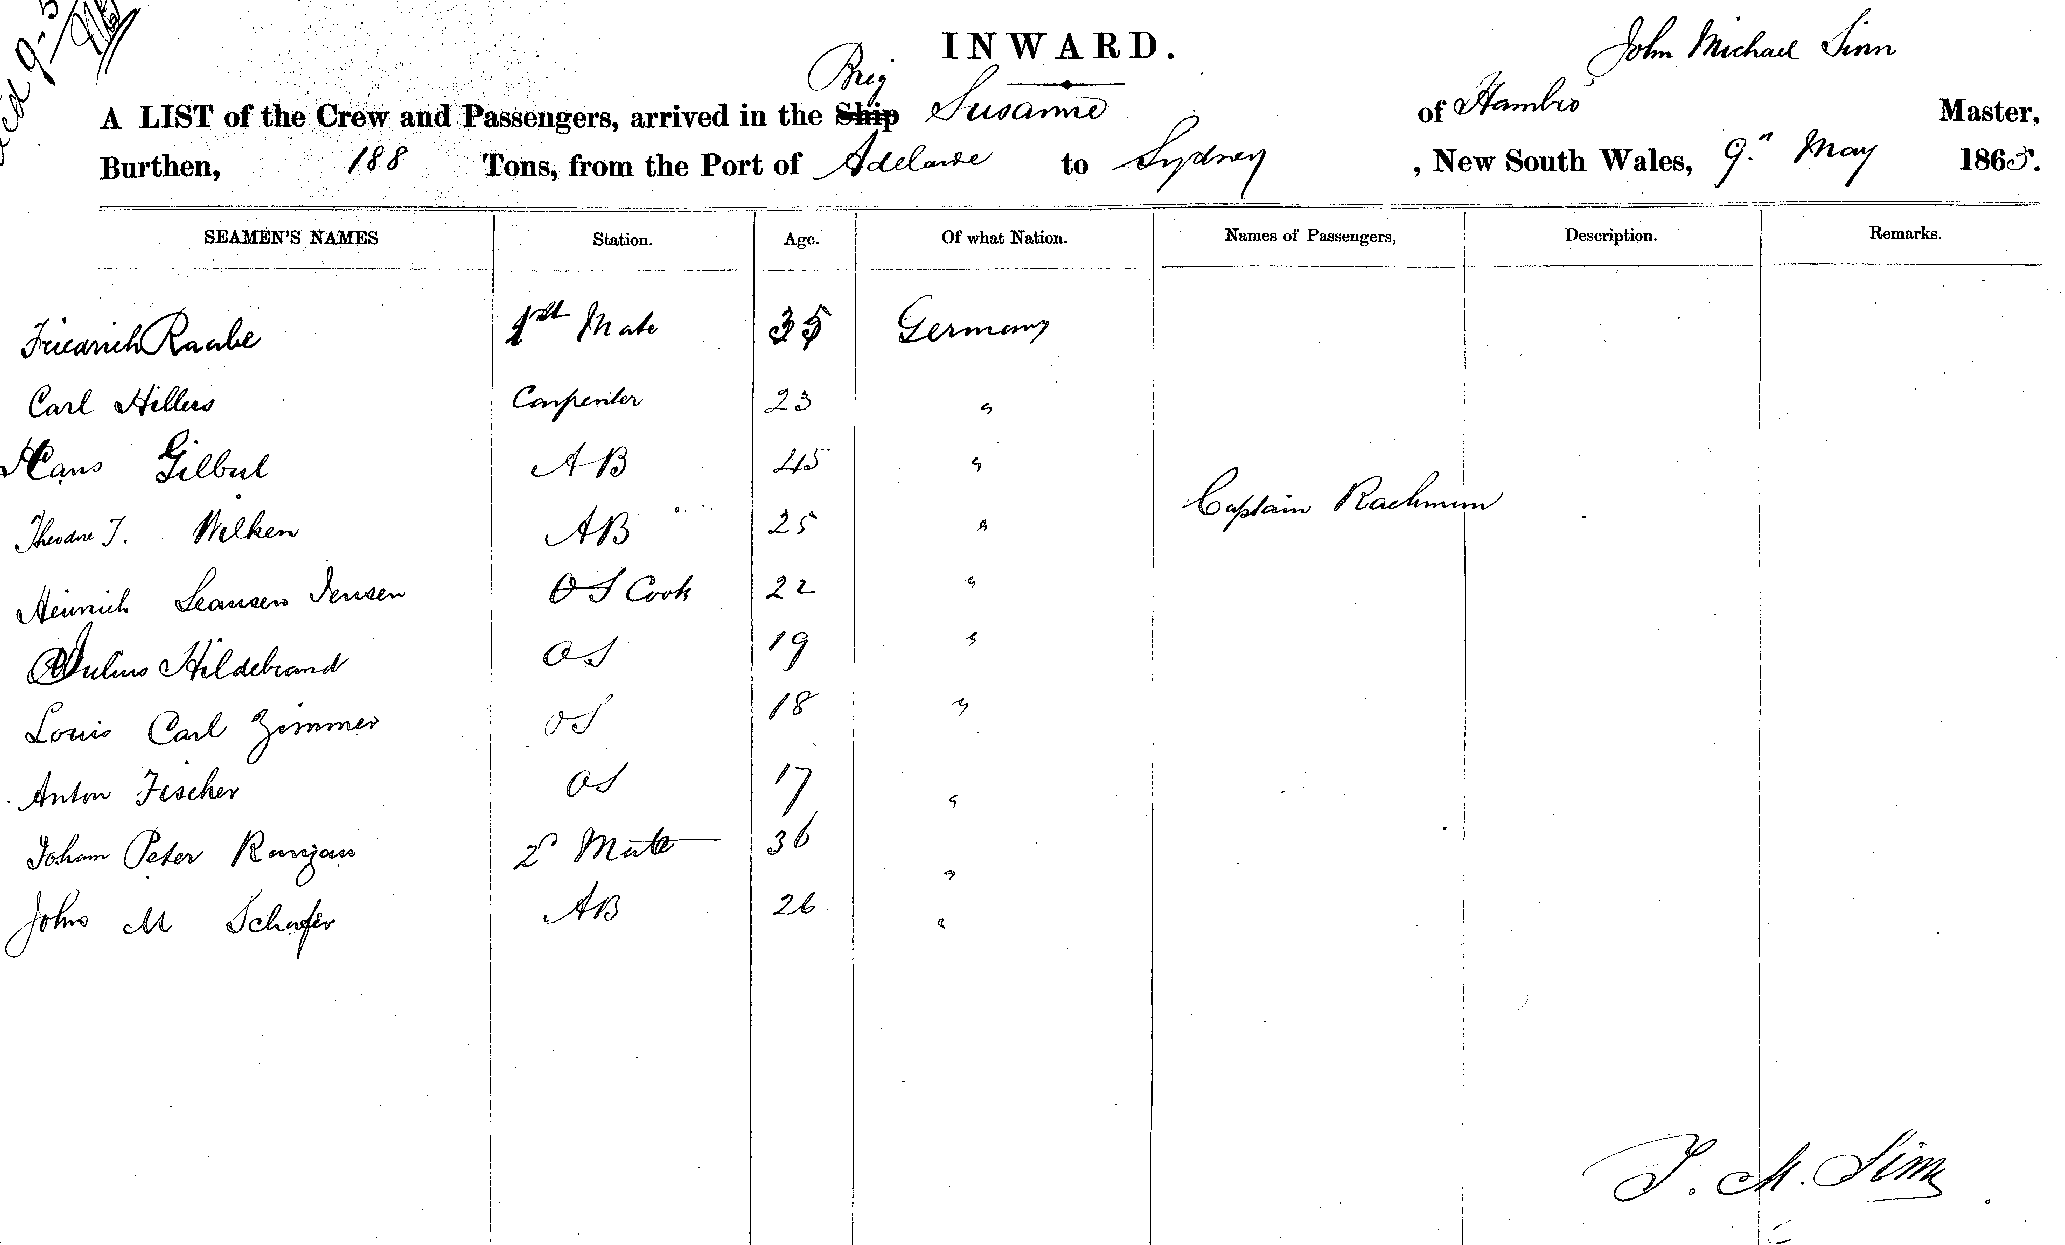 INWARD.
John Michael Sinn
Brig
A LIST of the Crew and Passengers, arrived in the Ship Susanne of Hambro Master,
Burthen, 188 Tons, from the Port of Adelaide to Sydney, New South Wales, 9th May 1865.
SEAMEN'S NAMES Station. Age. Of what Nation. Names of Passengers, Description. Remarks.
Friedrich Raabe 1st Mate 35 Germany
Carl Hillers Carpenter 23 "
Hans Gilbert AB 45 "
Captain Rachmin
Theodore T. Wilken AB 25 "
Heinrich Jensen OS Cook 22 "
Julius Hildebrand OS 19 "
Louis Carl Zimmer OS 18 "
Anton Fischer OS 17 "
Joham Peter 2d Mate 36 "
John M Schafer AB 26 "
J. M. Sinn